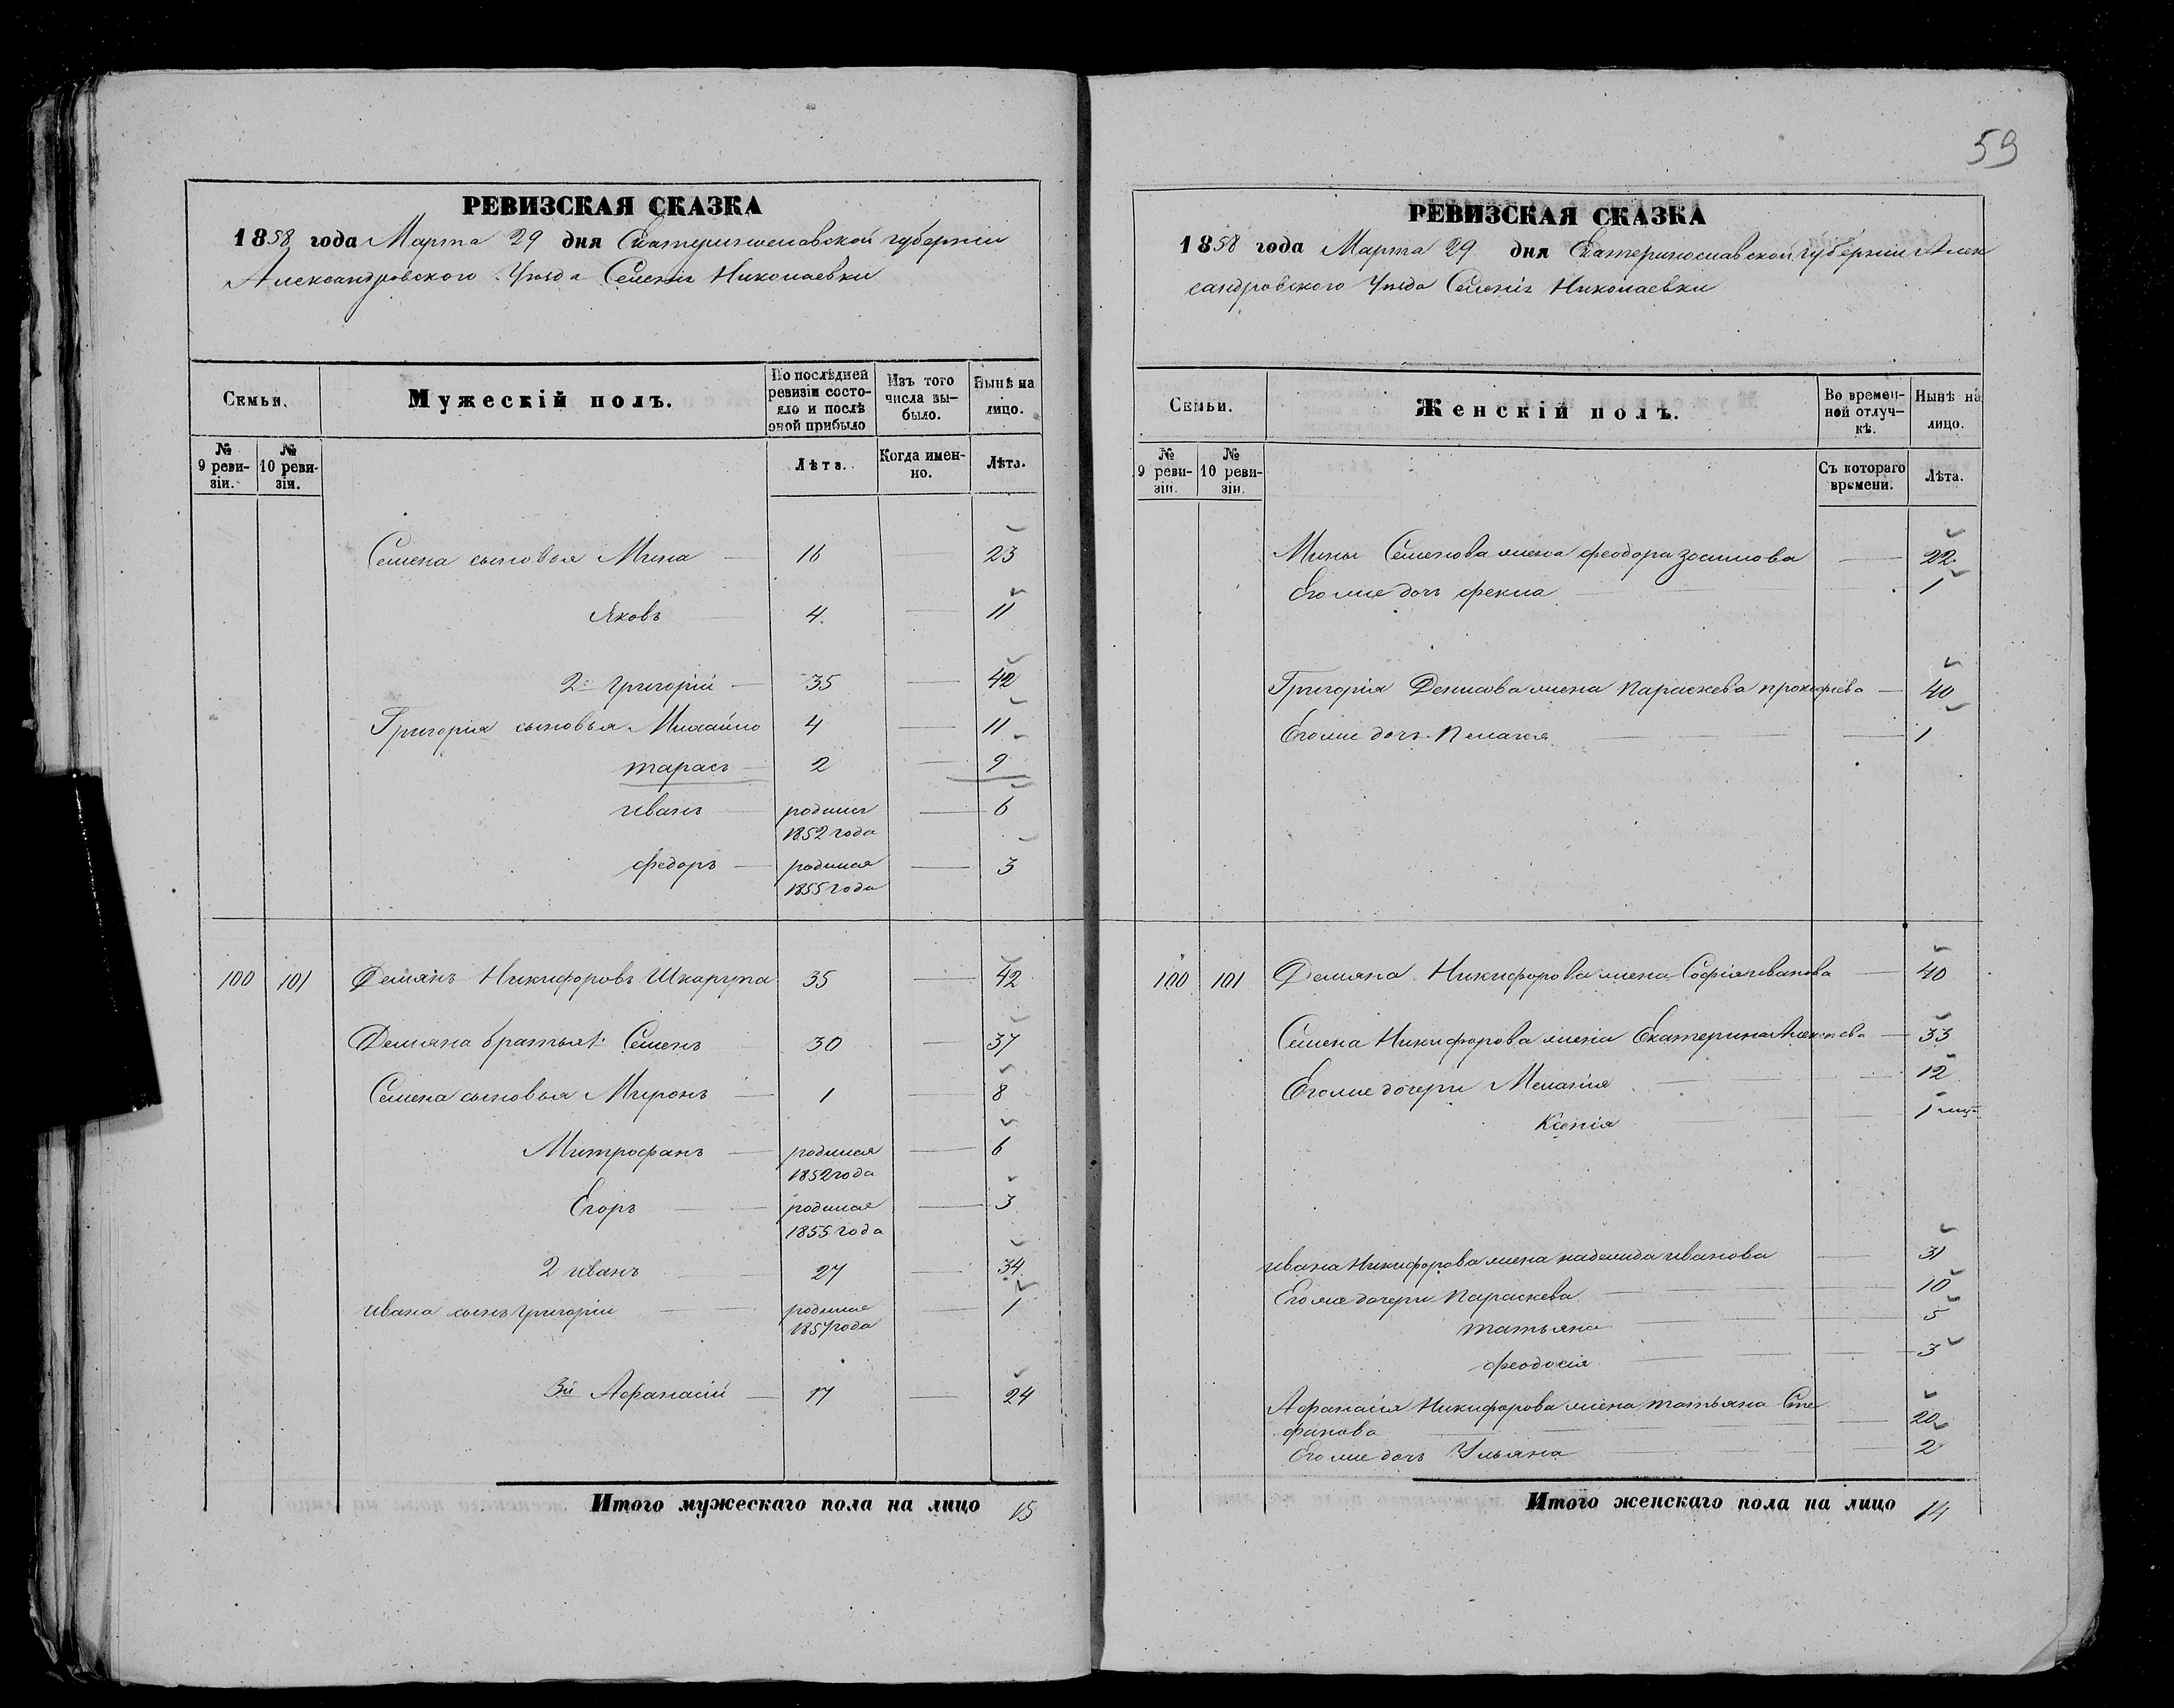 59
РЕВИЗСКАЯ СКАЗКА
1858 года Марта 29 дня Екатеринославской губерніи
Александровского Уѣзда Селенія Николаевки
Семьи.
Мужескій полъ.
По послѣдней ревизіи состояло и послѣ оной прибыло
Изъ того числа выбыло.
Нынѣ на лицо.
№ 9 ревизіи.
№ 10 ревизіи.
Лѣта.
Когда именно.
Лѣта.
Семена сыновья Мина 16 23
Яковъ 4 11
2й Григорій 35 42
Григорія сыновья Михайло 4 11
Тарасъ 2 9
Иванъ родился 6
1852 года
Федоръ родился 3
1855 года
100 101 Демянъ Никифоровъ Шкарупа 35 42
Демяна братья 1: Семенъ 30 37
Семена сыновья Миронъ 1 8
Митрофанъ родился 6
1852 года
Егоръ родился 3
1855 года
2 Иванъ 27 34
Ивана сынъ Григорій родился 1
1857 года
3й Афанасій 17 24
Итого мужескаго пола на лицо 15
РЕВИЗСКАЯ СКАЗКА
1858 года Марта 29 дня Екатеринославской губерніи Алек
сандровского Уѣзда Селенія Николаевки
Семьи.
Женскій полъ.
Во временной отлучкѣ.
Нынѣ на лицо.
№ 9 ревизіи.
№ 10 ревизіи.
Съ котораго времени.
Лѣта.
Мины Семенова жена Феодора Зосимова 22
Его же дочь Фекла 1
Григорія Денисова жена Параскева Прокофіева 40
Его же дочь Пелагея 1
100 101 Демяна Никифорова жена Софія Иванова 40
Семена Никифорова жена Екатерина Алексѣева 33
Его же дочери Меланія 12
Ксенія 1
Ивана Никифорова жена Надежда Иванова 31
Его же дочери Параскева 10
Татьяна 5
Феодосія 3
Афанасія Никифорова жена Татьяна Сте
фанова 20
Его же дочь Ульяна 2
Итого женскаго пола на лицо 14